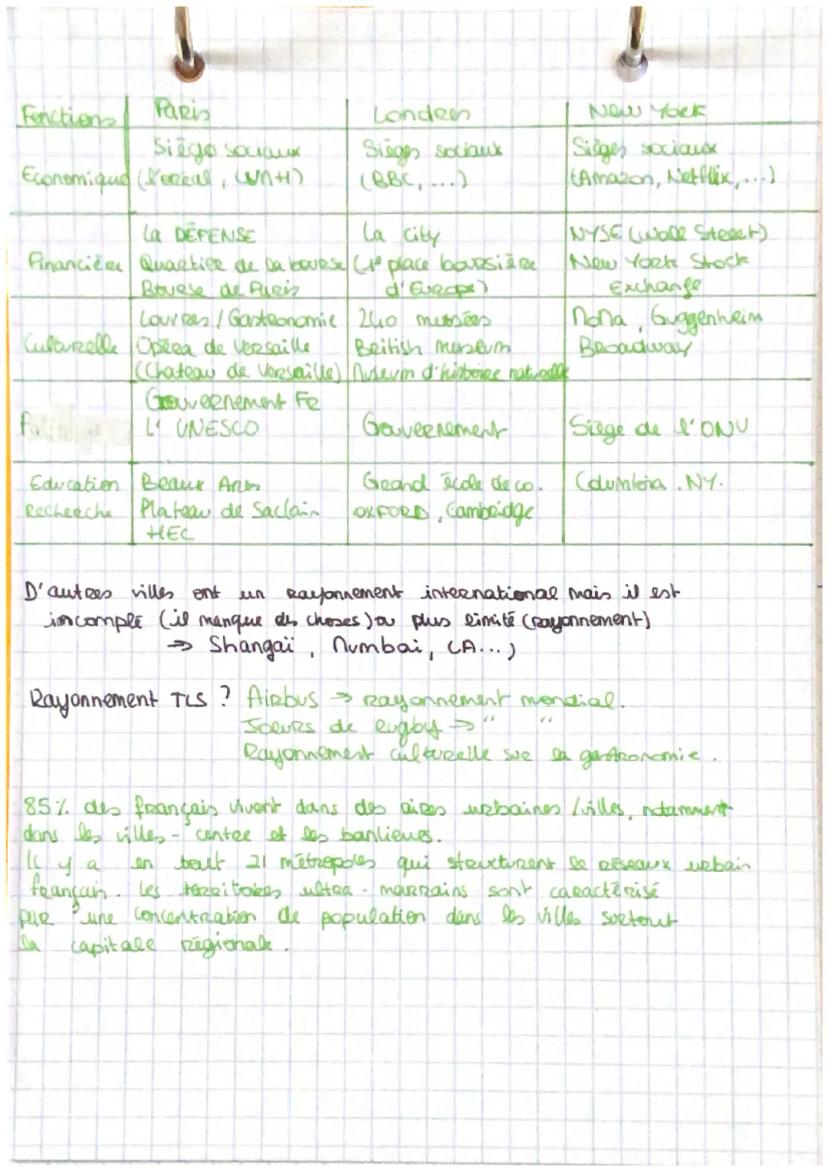 Fonctions Paris Londres New York
Siège sociaux Sièges sociaux Sièges sociaux
Economique (l'oréal, LVMH) (BBC, ...) (Amazon, Netflix, ...)
La DÉFENSE La city NYSE (Wall Street)
Financière Quartier de la bourse (1e place boursière New York Stock
Bourse de Paris d'Europe) Exchange
Louvres / Gastronomie 240 musées MoMa, Guggenheim
Culturelle Opéra de Versaille British museum Broadway
(Chateau de Versaille) Muséum d'histoire naturelle
Gouvernement Fr
L' UNESCO Gouvernement Siège de l'ONU
Education Beaux Arts Grand école de co. Columbia . NY.
Recherche Plateau de Saclain OXFORD, Cambridge
HEC
D'autres villes ont un rayonnement international mais il est
incomplé (il manque des choses) ou plus limité (rayonnement)
→ Shangaï, Mumbai, LA...)
Rayonnement TLS ? Airbus → rayonnement mondial.
de rugby → " "
Rayonnement culturelle sur la gastronomie.
85% des français vivent dans des aires urbaines / villes, notamment
dans les villes-centre et les banlieues.
Il y a en tout 21 métropoles qui structurent le réseaux urbain
français. Les territoires ultra-marrains sont caractérisé
par une concentration de population dans les villes surtout
la capitale régionale.